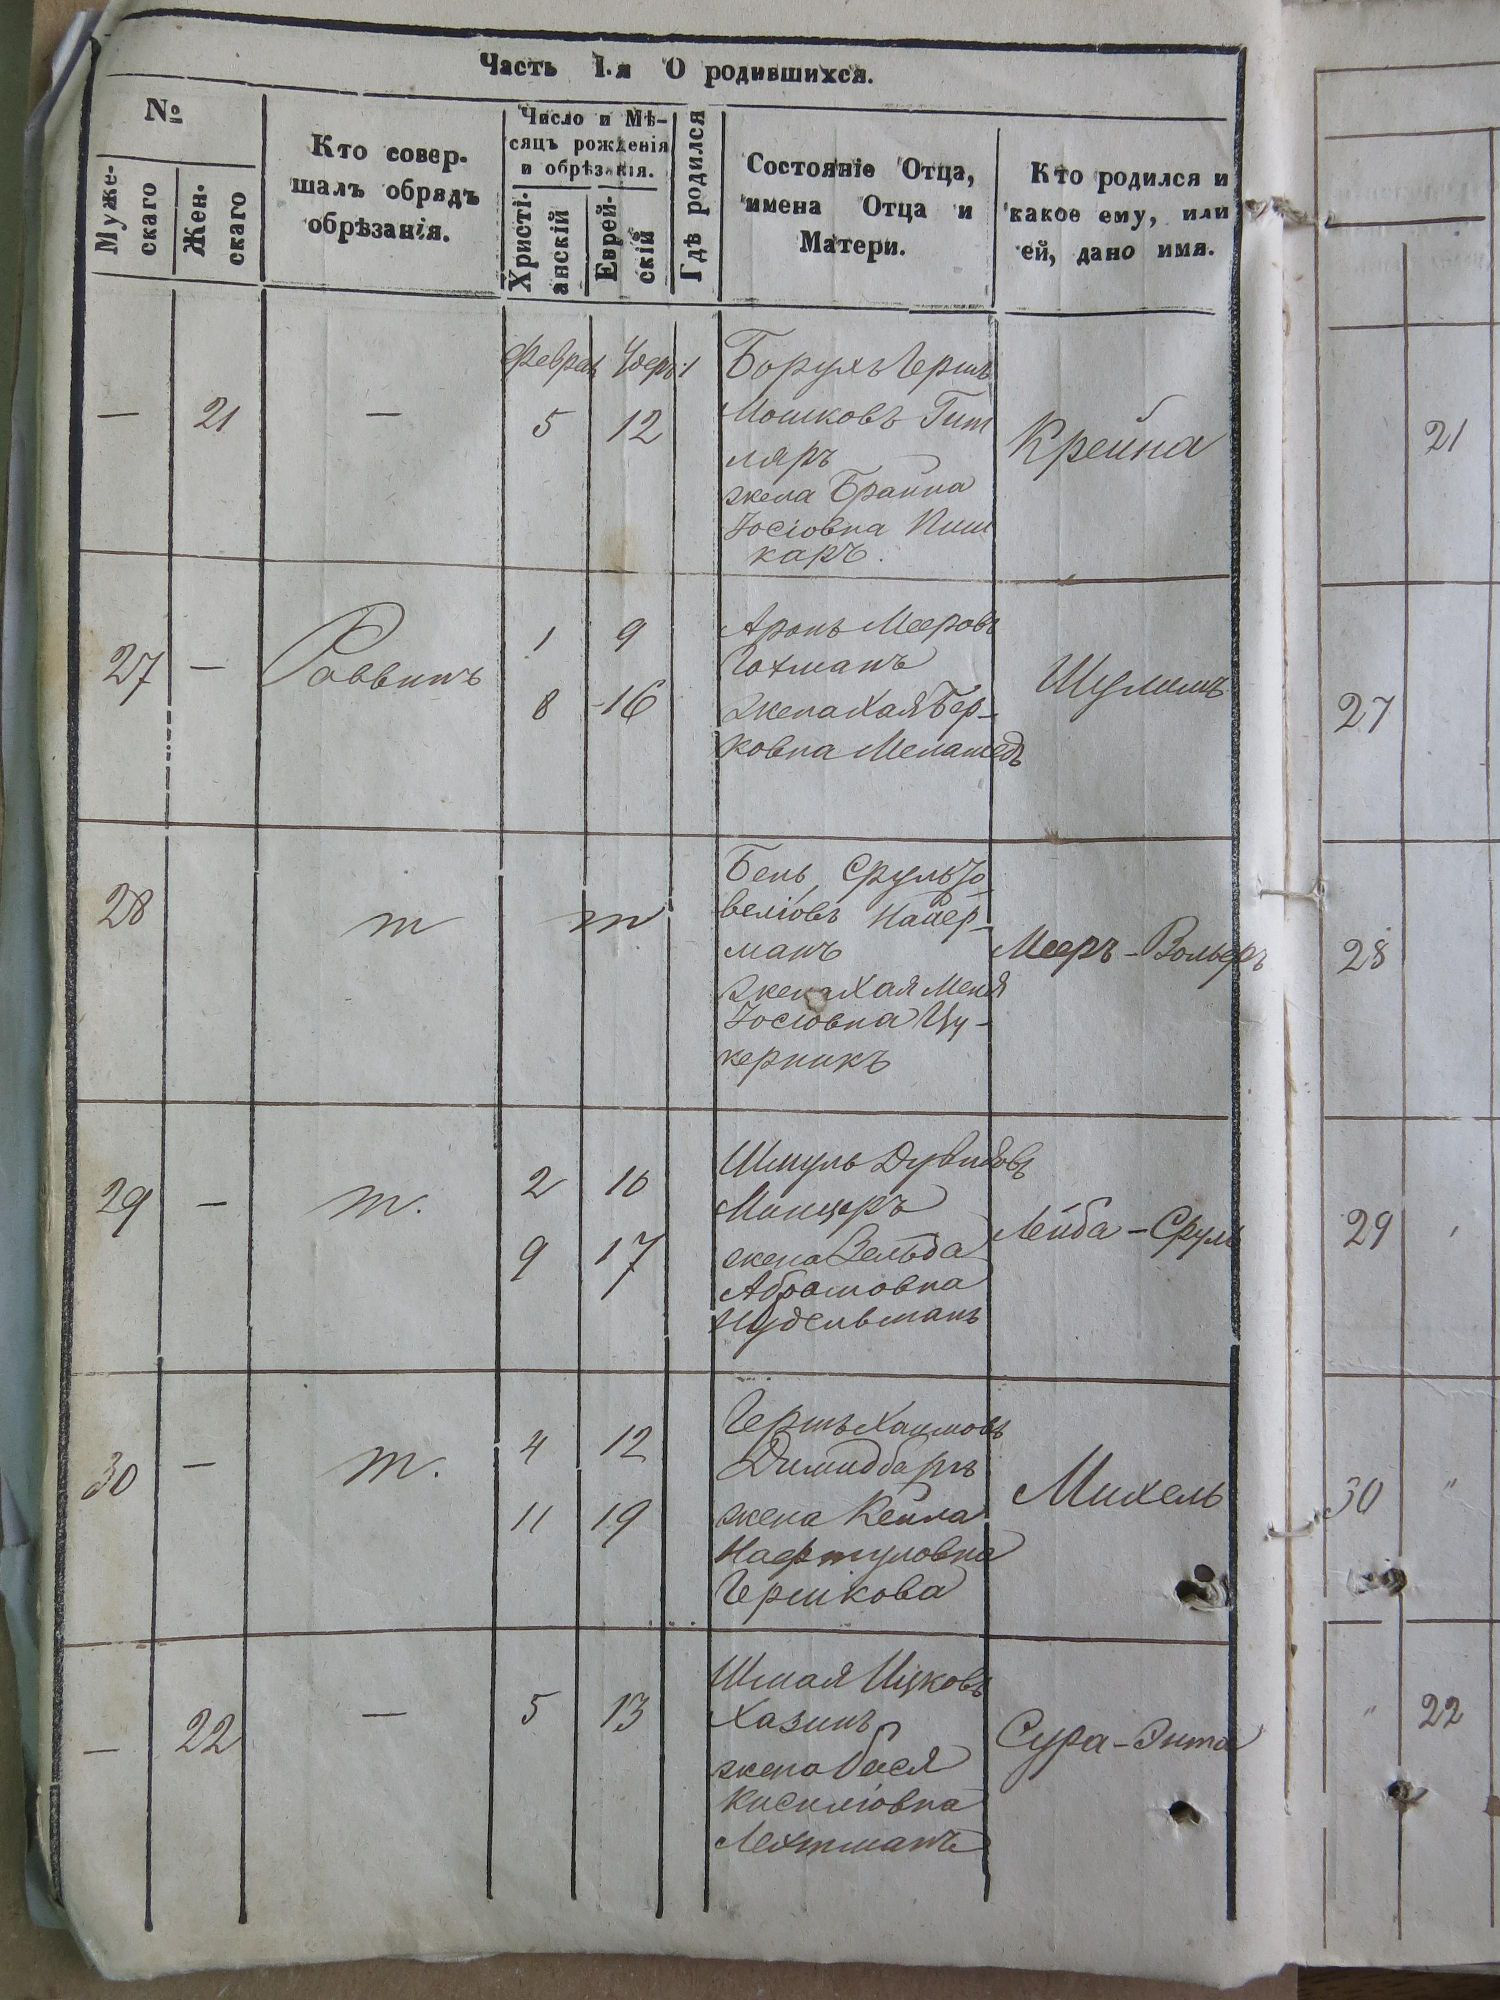 Часть I.я О родившихся.
№
Муже-
скаго
Жен-
скаго
Кто совер-
шалъ обрядъ
обрѣзанія.
Число и Мѣ-
сяцъ рожденія
и обрѣзанія.
Христі-
анскій
Еврей-
скій
Гдѣ родился
Состояніе Отца,
имена Отца и
Матери.
Кто родился и
какое ему, или
ей, дано имя.
— 21 —
Феврал
5 12
Борухъ Гершъ
Мошковъ Гит
ляръ
жена Брайна
Іосіовна Киш
каръ.
Крейна
27 — Раввинъ
1 9
8 16
Аронъ Мееровъ
Гохманъ
жена Хая Бер-
ковна Меламедъ
Шулимъ
28 т т
Бень Сруль Іо
веліовъ Найер-
манъ
жена Хая Меня
Іосіовна Цу-
керникъ
Мееръ-Вольфъ
29 — т.
2 10
9 17
Шмуль Дувидовъ
Манцеръ
жена Зельда
Абрамовна
Нудельманъ
Лейба-Сруль
30 — т.
4 12
11 19
Гершъ Хаимовъ
Димидбаргъ
жена Кейла
Нафтуловна
Гершкова
Михель
— 22 —
5 13
Шмая Ицковъ
Хазинъ
жена Бася
Кисиліовна
Лехтманъ
Сура-Энта
21
27
28
29
30 "
" 22